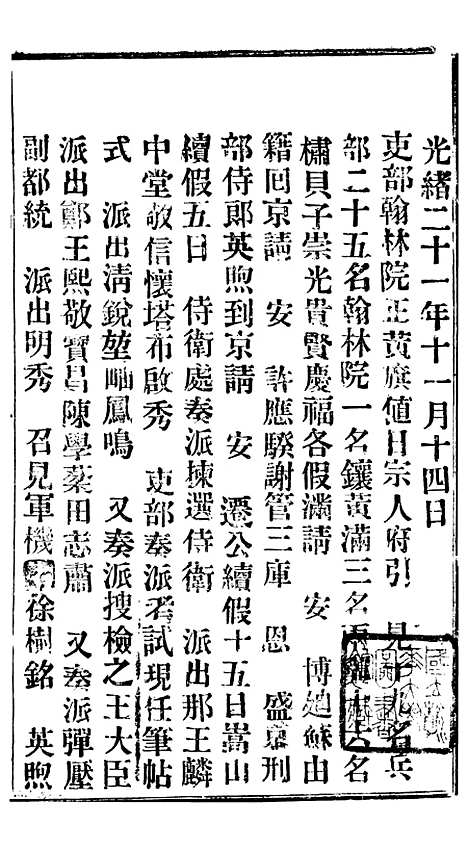 光緒二十一年十一月十四日
吏部翰林院正黃旗值日宗人府引　見十九名兵
部二十五名翰林院一名鑲黃滿三名
橚貝子崇光貴賢慶福各假滿請　安　博廸蘇由
籍回京請　安　許應騤謝管三庫　恩　盛宣刑
部侍郎英煦到京請　安　遷公續假十五日嵩山
續假五日　侍衛處奏派揀選侍衛　派出那王麟
中堂敬信懷塔布啟秀　吏部奏派考試現任筆帖
式　派出清銳堃岫鳳鳴　又奏派搜檢之王大臣
派出鄭王熙敬寶昌陳學棻田志肅　又奏派彈壓
副都統　派出明秀　召見軍機　徐樹銘　英煦